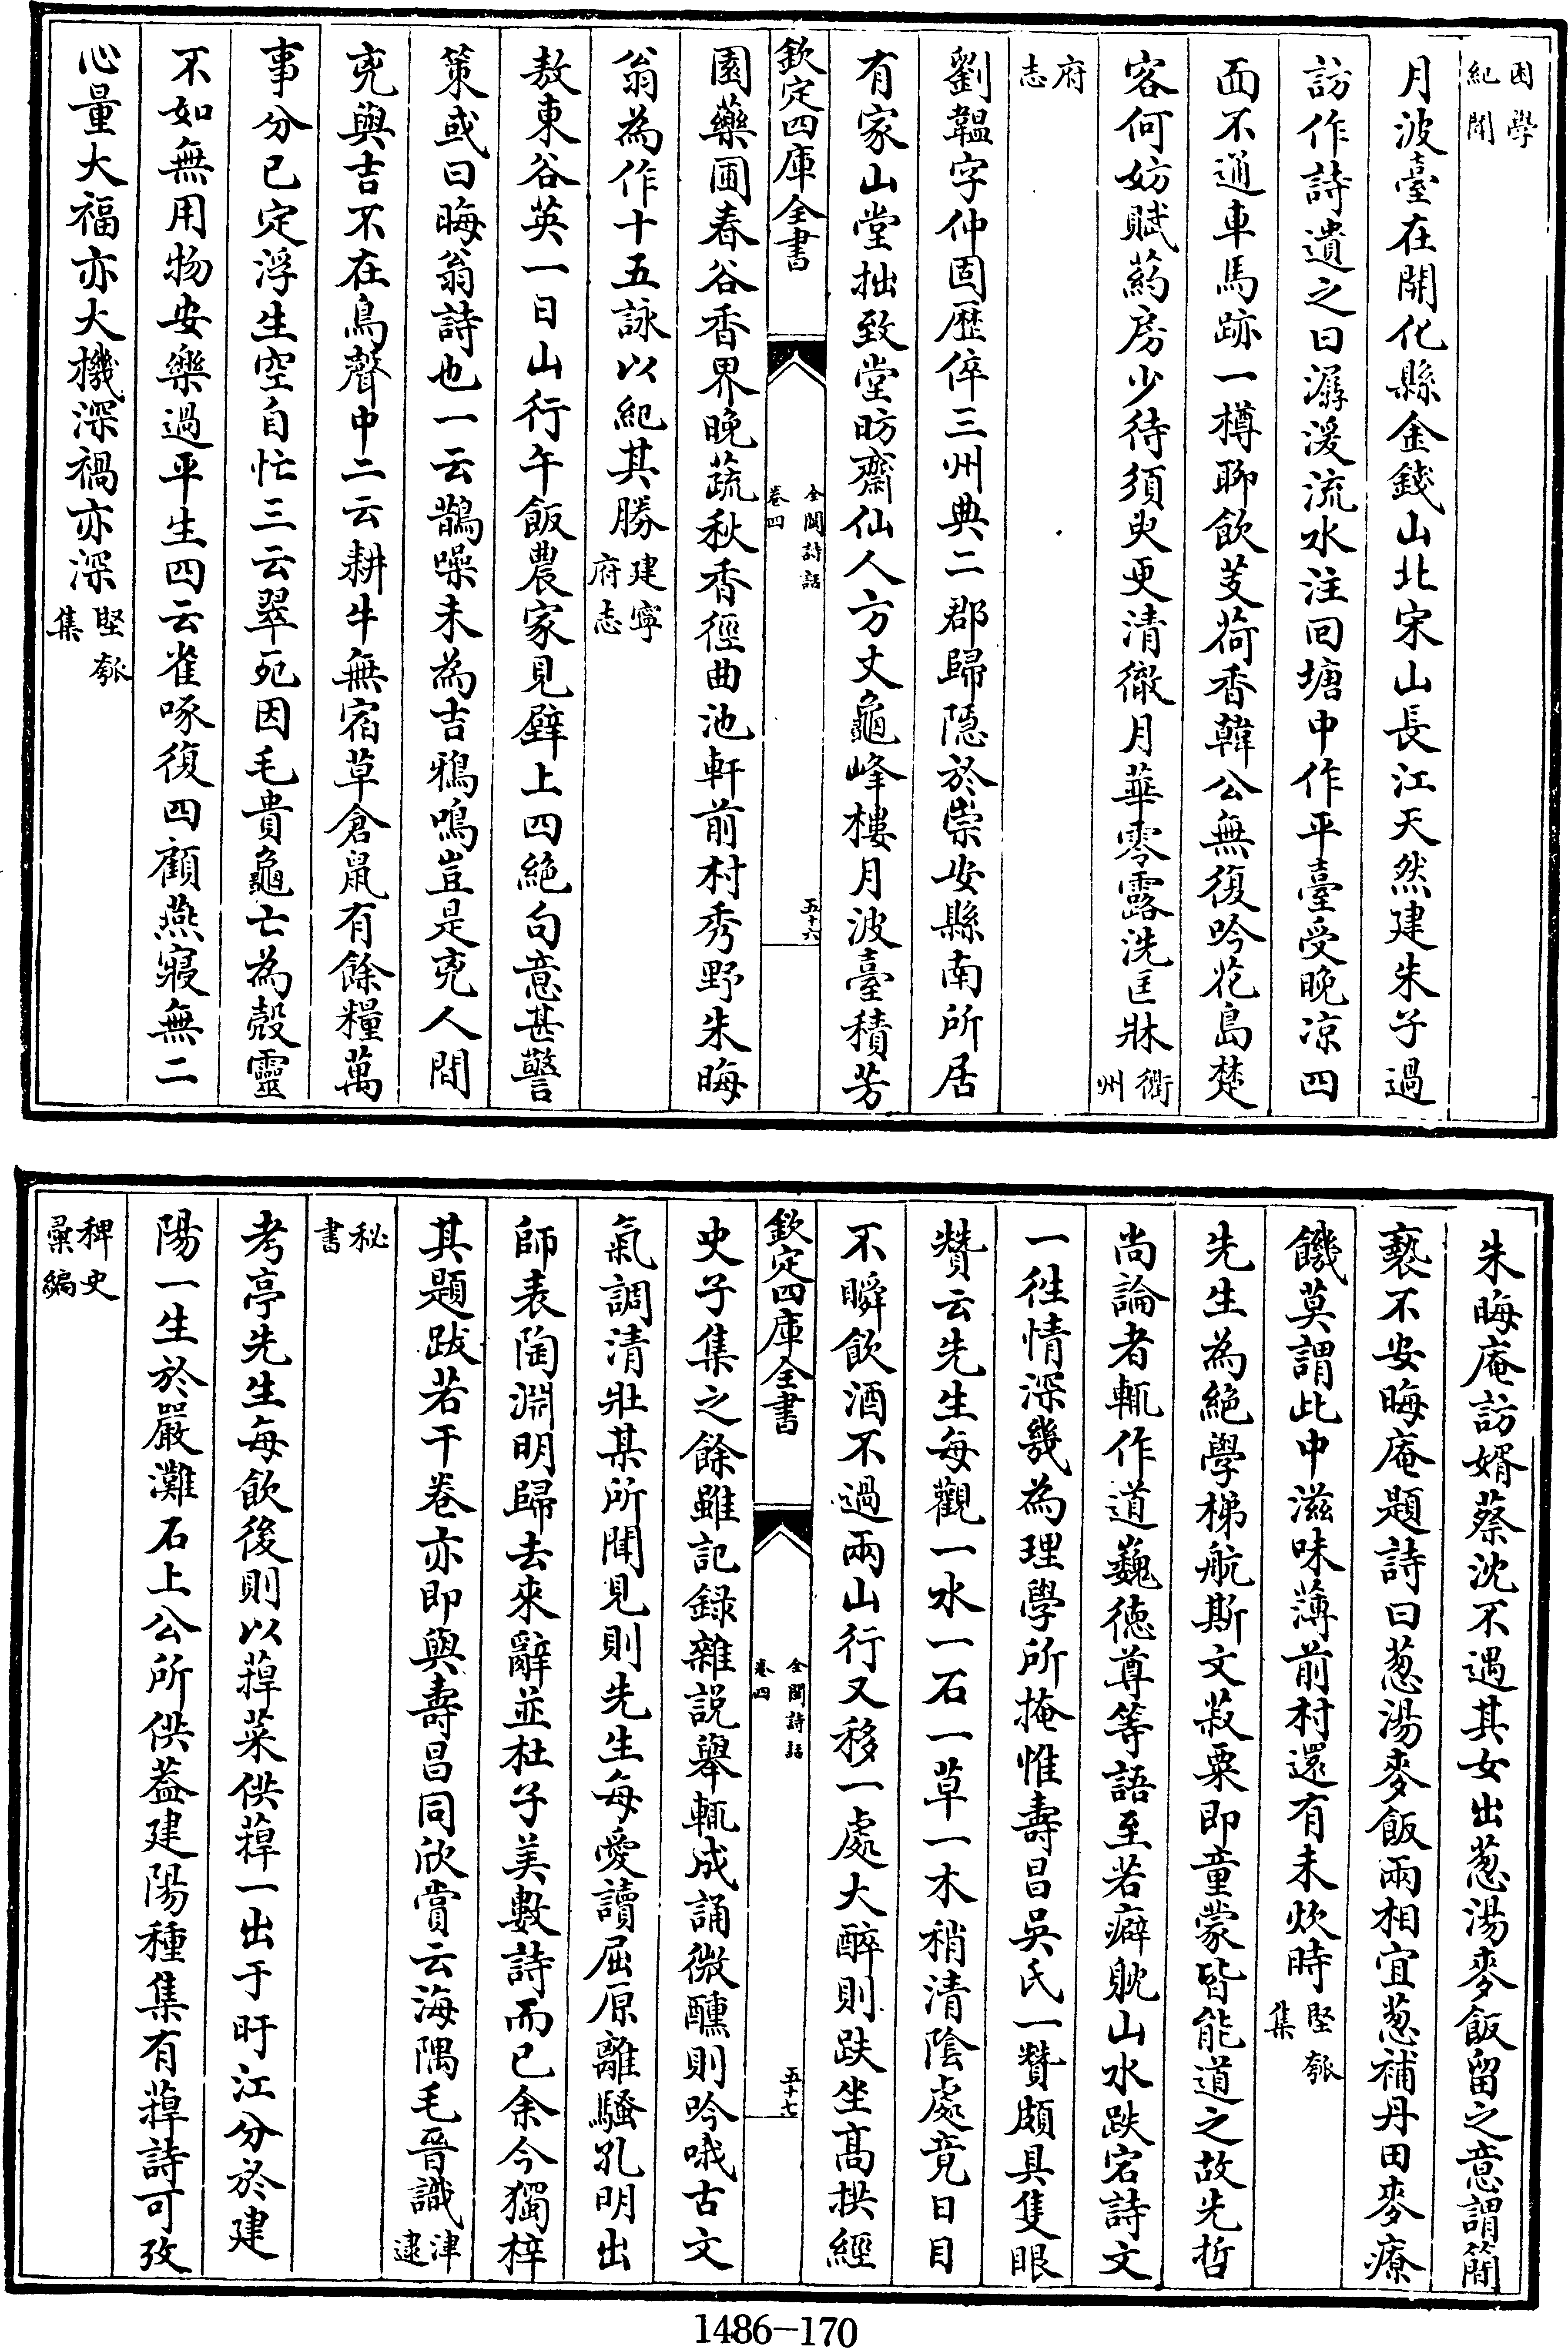 困學紀聞
月波臺在開化縣金錢山北宋山長江天然建朱子過
訪作詩遺之曰潺湲流水注回塘中作平臺受晚凉四
面不通車馬跡一樽聊飲芰荷香韓公無復吟花島楚
客何妨賦葯房少待須臾更清徹月華零露洗匡牀衢州
府志
劉韞字仲固歷倅三州典二郡歸隱於崇安縣南所居
有家山堂拙致堂昉齋仙人方丈龜峰樓月波臺積芳
欽定四庫全書
全閩詩話
卷四
五十六
園藥圃春谷香界晚蔬秋香徑曲池軒前村秀野朱晦
翁為作十五詠以紀其勝建寧府志
敖東谷英一日山行午飯農家見壁上四絶句意甚警
策或曰晦翁詩也一云鵲噪未為吉鴉鳴豈是兇人間
兇與吉不在鳥聲中二云耕牛無宿草倉鼠有餘糧萬
事分已定浮生空自忙三云翠死因毛貴龜亡為殼靈
不如無用物安樂過平生四云雀啄復四顧燕寢無二
心量大福亦大機深禍亦深堅瓠集
朱晦庵訪婿蔡沈不遇其女出葱湯麥飯留之意謂簡
褻不安晦庵題詩曰葱湯麥飯兩相宜葱補丹田麥療
饑莫謂此中滋味薄前村還有未炊時堅瓠集
先生為絶學梯航斯文菽粟即童蒙皆能道之故先哲
尚論者輒作道巍德尊等語至若癖躭山水跌宕詩文
一徃情深幾為理學所掩惟壽昌吳氏一贊頗具隻眼
贊云先生每觀一水一石一草一木稍清陰處竟日目
不瞬飲酒不過兩山行又移一處大醉則趺坐高拱經
欽定四庫全書
全閩詩話
卷四
五十七
史子集之餘雖記錄雜說舉輒成誦微醺則吟哦古文
氣調清壯某所聞見則先生每愛讀屈原離騷孔明出
師表陶淵明歸去來辭並杜子美數詩而已余今獨梓
其題跋若干卷亦即與壽昌同欣賞云海隅毛晉識津逮
秘書
考亭先生每飲後則以蔊菜供蔊一出于盱江分於建
陽一生於嚴灘石上公所供葢建陽種集有蔊詩可攷
稗史彙編
1486-170